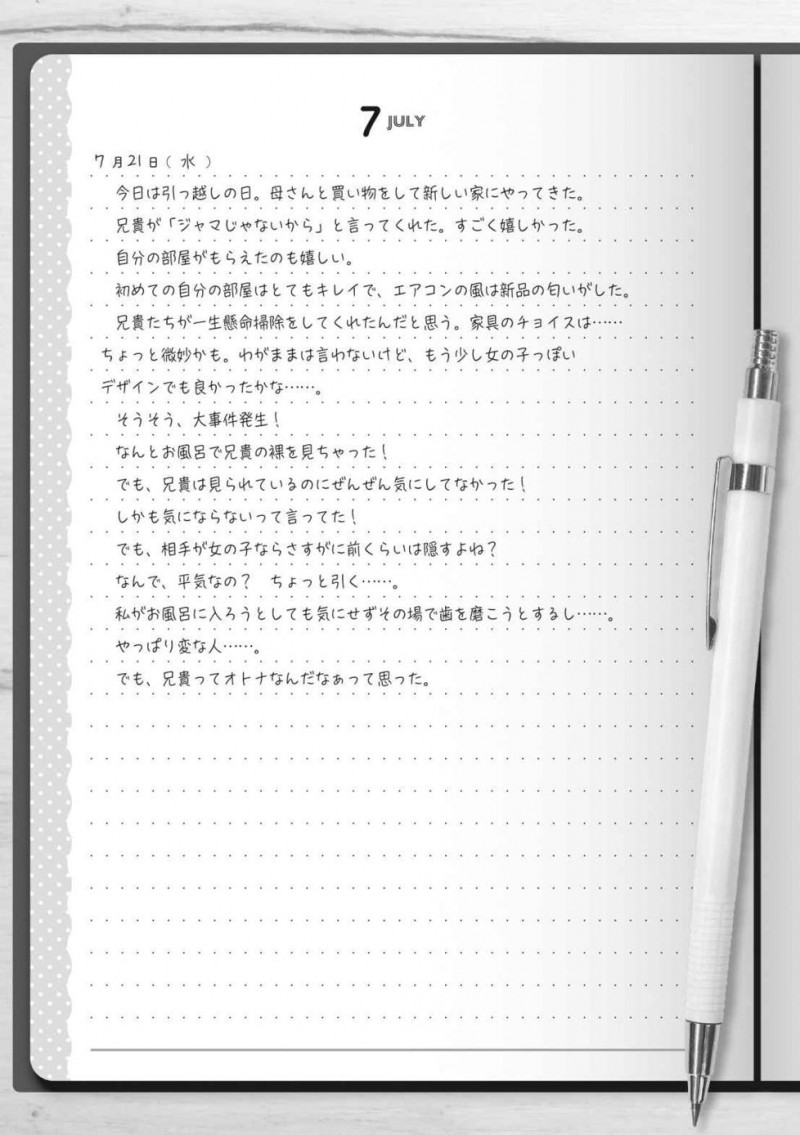 7 JULY
7月21日(水)
今日は引っ越しの日。母さんと買い物をして新しい家にやってきた。
兄貴が「ジャマじゃないから」と言ってくれた。すごく嬉しかった。
自分の部屋がもらえたのも嬉しい。
初めての自分の部屋はとてもキレイで、エアコンの風は新品の匂いがした。
兄貴たちが一生懸命掃除をしてくれたんだと思う。家具のチョイスは……
ちょっと微妙かも。わがままは言わないけど、もう少し女の子っぽい
デザインでも良かったかな……。
そうそう、大事件発生!
なんとお風呂で兄貴の裸を見ちゃった!
でも、兄貴は見られているのにぜんぜん気にしてなかった!
しかも気にならないって言ってた!
でも、相手が女の子ならさすがに前くらいは隠すよね?
なんで、平気なの? ちょっと引く……。
私がお風呂に入ろうとしても気にせずその場で歯を磨こうとするし……。
やっぱり変な人……。
でも、兄貴ってオトナなんだなぁって思った。